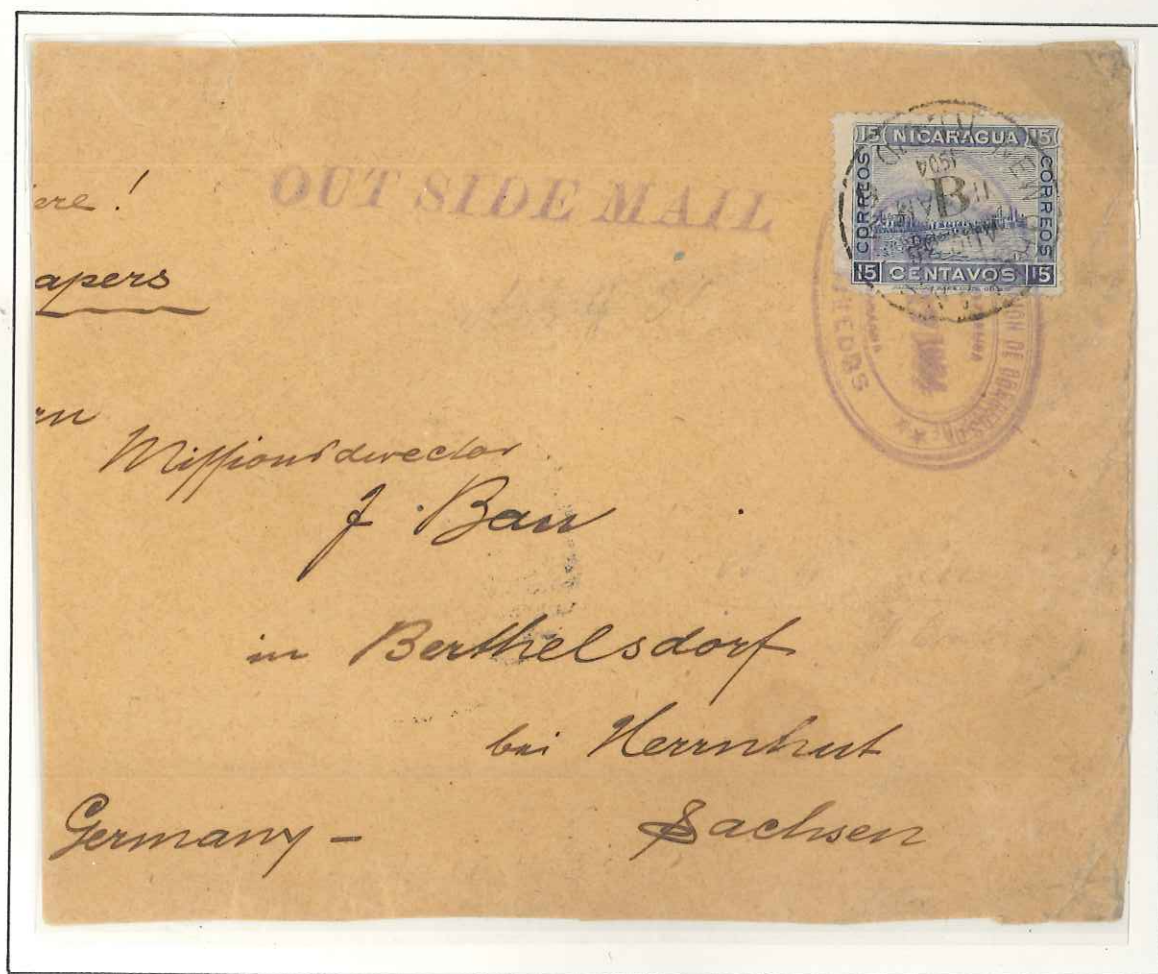 OUT SIDE MAIL
15 NICARAGUA 15
CORREOS
CORREOS
B
1904
11 AM
15 CENTAVOS 15
ere!
apers
Missionsdirector
J. Bau
in Berthelsdorf
bei Herrnhut
Germany - Sachsen